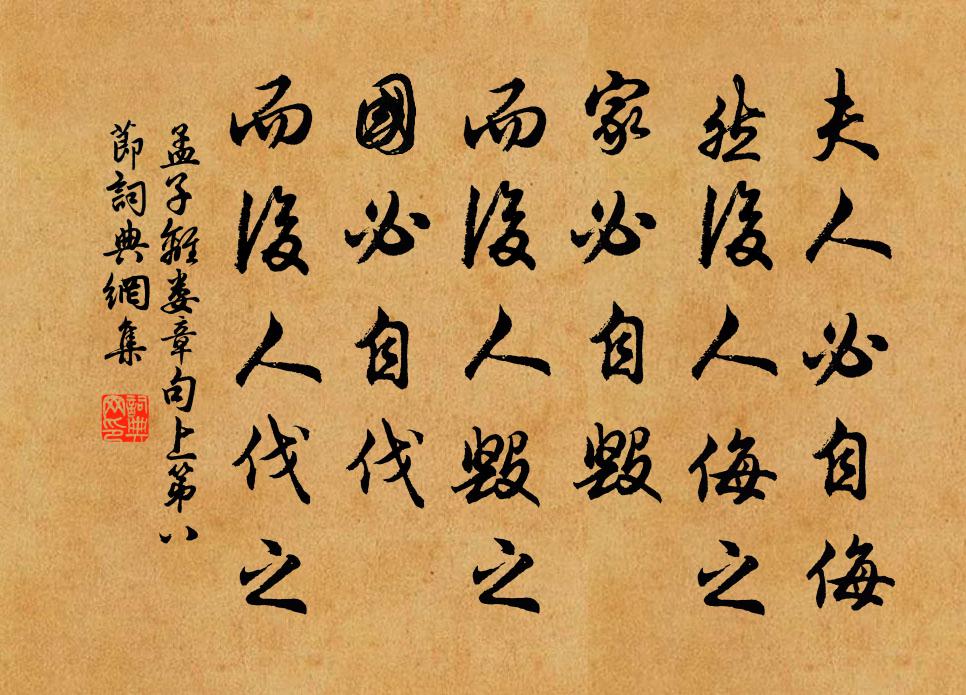 夫人必自侮
然後人侮之
家必自毀
而後人毀之
國必自伐
而後人伐之
孟子離婁章句上第八
節詞典網集
詞典
网印